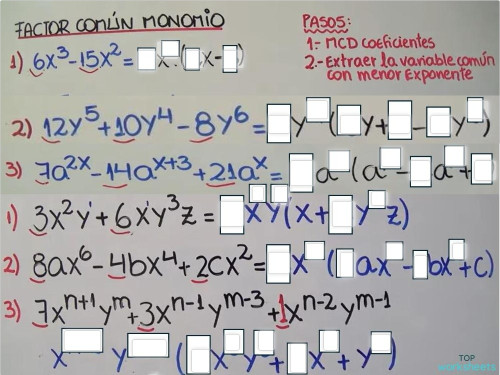 FACTOR COMÚN MONOMIO
PASOS:
1.- MCD coeficientes
2.- Extraer la variable común
con menor Exponente
1) 6x³ - 15x² = □x□·(□x - □)
2) 12y⁵ + 10y⁴ - 8y⁶ = □y□(□y + □ - □y□)
3) 7a²ˣ - 14aˣ⁺³ + 21aˣ = □a□(a□ - □a□ + □)
1) 3x²y¹ + 6x¹y³z = □x□y□(x + □y□z)
2) 8ax⁶ - 4bx⁴ + 2cx² = □x□(□ax□ - □bx□ + c)
3) 7xⁿ⁺¹yᵐ + 3xⁿ⁻¹yᵐ⁻³ + 1xⁿ⁻²yᵐ⁻¹
x□ y□ (□x□y□ + □x□ + y□)
TOP
worksheets